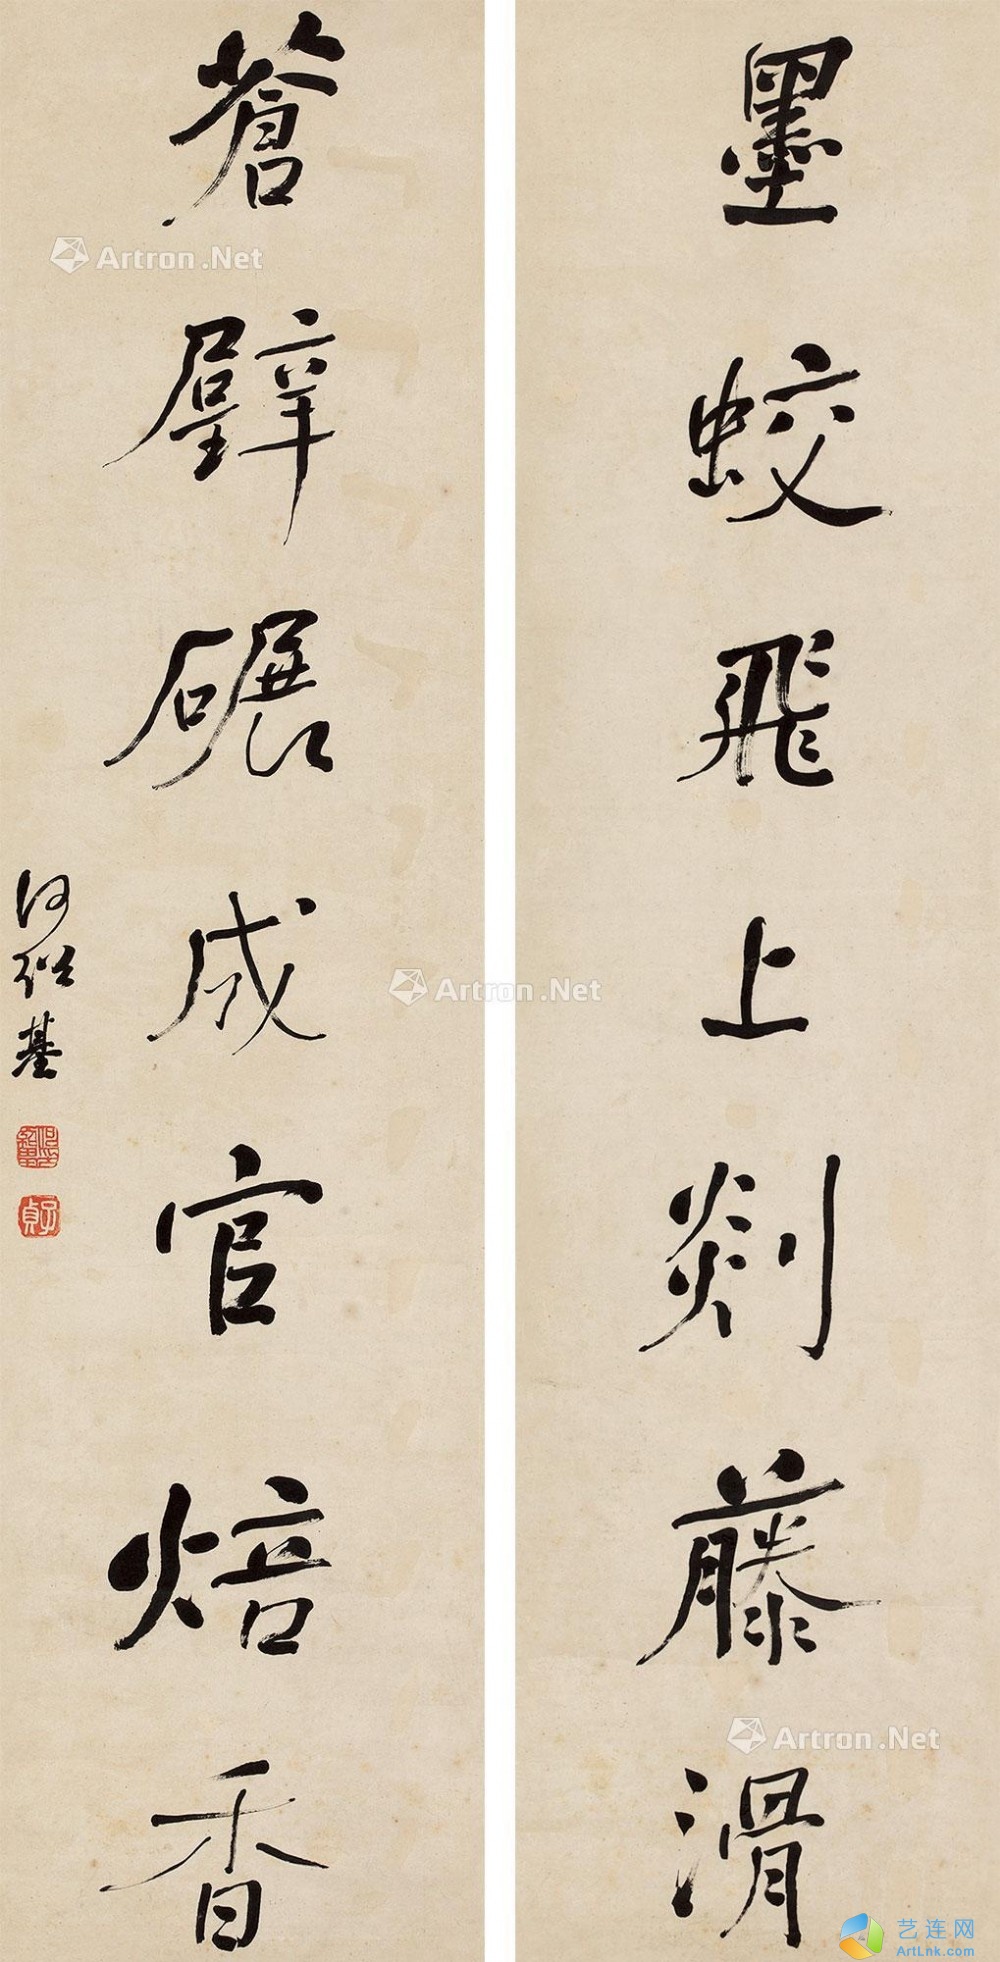 墨蛟飛上剡藤滑
蒼璧碾成官焙香
何紹基
子貞
Artron.Net
Artron.Net
Artron.Net
艺连网
ArtLnk.com